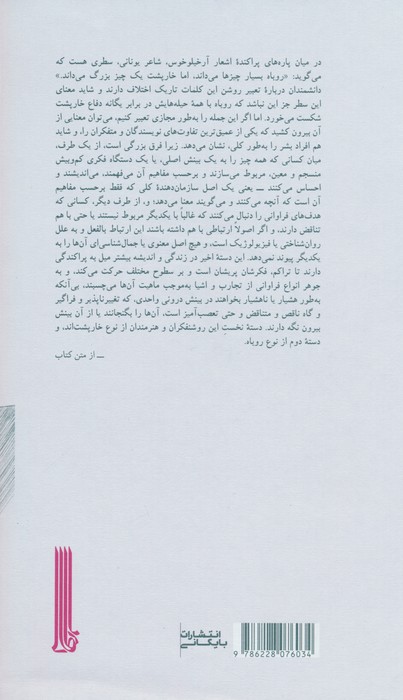 در میان پاره‌های پراکندهٔ اشعار آرخیلوخوس، شاعر یونانی، سطری هست که
می‌گوید: «روباه بسیار چیزها می‌داند، اما خارپشت یک چیز بزرگ می‌داند.»
دانشمندان دربارهٔ تعبیر روشن این کلمات تاریک اختلاف دارند و شاید معنای
این سطر جز این نباشد که روباه با همهٔ حیله‌هایش در برابر یگانه دفاع خارپشت
شکست می‌خورد. اما اگر این جمله را به‌طور مجازی تعبیر کنیم، می‌توان معنایی از
آن بیرون کشید که یکی از عمیق‌ترین تفاوت‌های نویسندگان و متفکران را، و شاید
هم افراد بشر را به‌طور کلی، نشان می‌دهد. زیرا فرق بزرگی است، از یک طرف،
میان کسانی که همه چیز را به یک بینش اصلی، یا یک دستگاه فکری کم‌وبیش
منسجم و معین، مربوط می‌سازند و برحسب مفاهیم آن می‌فهمند، می‌اندیشند و
احساس می‌کنند ــ یعنی یک اصل سازمان‌دهندهٔ کلی که فقط برحسب مفاهیم
آن است که آنچه می‌کنند و می‌گویند معنا می‌دهد؛ و، از طرف دیگر، کسانی که
هدف‌های فراوانی را دنبال می‌کنند که غالباً با یکدیگر مربوط نیستند یا حتی با هم
تناقض دارند، و اگر اصولاً ارتباطی با هم داشته باشند این ارتباط بالفعل و به علل
روان‌شناختی یا فیزیولوژیک است، و هیچ اصل معنوی یا جمال‌شناسی‌ای آن‌ها را به
یکدیگر پیوند نمی‌دهد. این دستهٔ اخیر در زندگی و اندیشه بیشتر میل به پراکندگی
دارند تا تراکم، فکرشان پریشان است و بر سطوح مختلف حرکت می‌کند، و به
جوهر انواع فراوانی از تجارب و اشیا به‌موجب ماهیت آن‌ها می‌چسبند، بی‌آنکه
به‌طور هشیار یا ناهشیار بخواهند در بینش درونی واحدی، که تغییرناپذیر و فراگیر
و گاه ناقص و متناقض و حتی تعصب‌آمیز است، آن‌ها را بگنجانند یا از آن بینش
بیرون نگه دارند. دستهٔ نخستِ این روشنفکران و هنرمندان از نوع خارپشت‌اند، و
دستهٔ دوم از نوع روباه.
ــ از متن کتاب
انتشارات
بایگانی
9 786228 076034